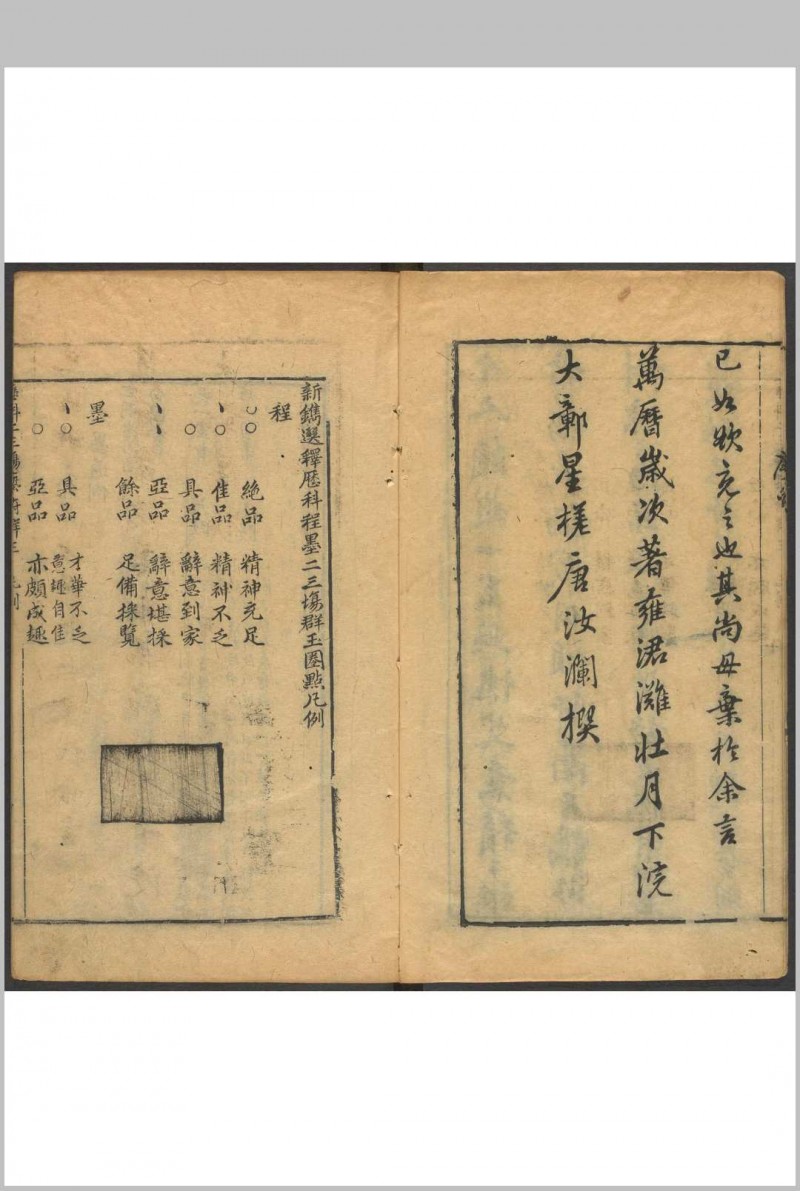 已如欲充之也其尚毋棄於余言
萬曆歲次著雍涒灘壯月下浣
大鄣星槎唐汝瀾撰
新鐫選釋歷科程墨二三塲群玉圈點凡例
程
○○ 絶品 精神充足
、○ 佳品 精神不乏
○ 具品 辭意到家
、、 亞品 辭意堪採
餘品 足備採覽
墨
、○ 具品 才華不乏 意趣自佳
○ 亞品 亦頗成趣